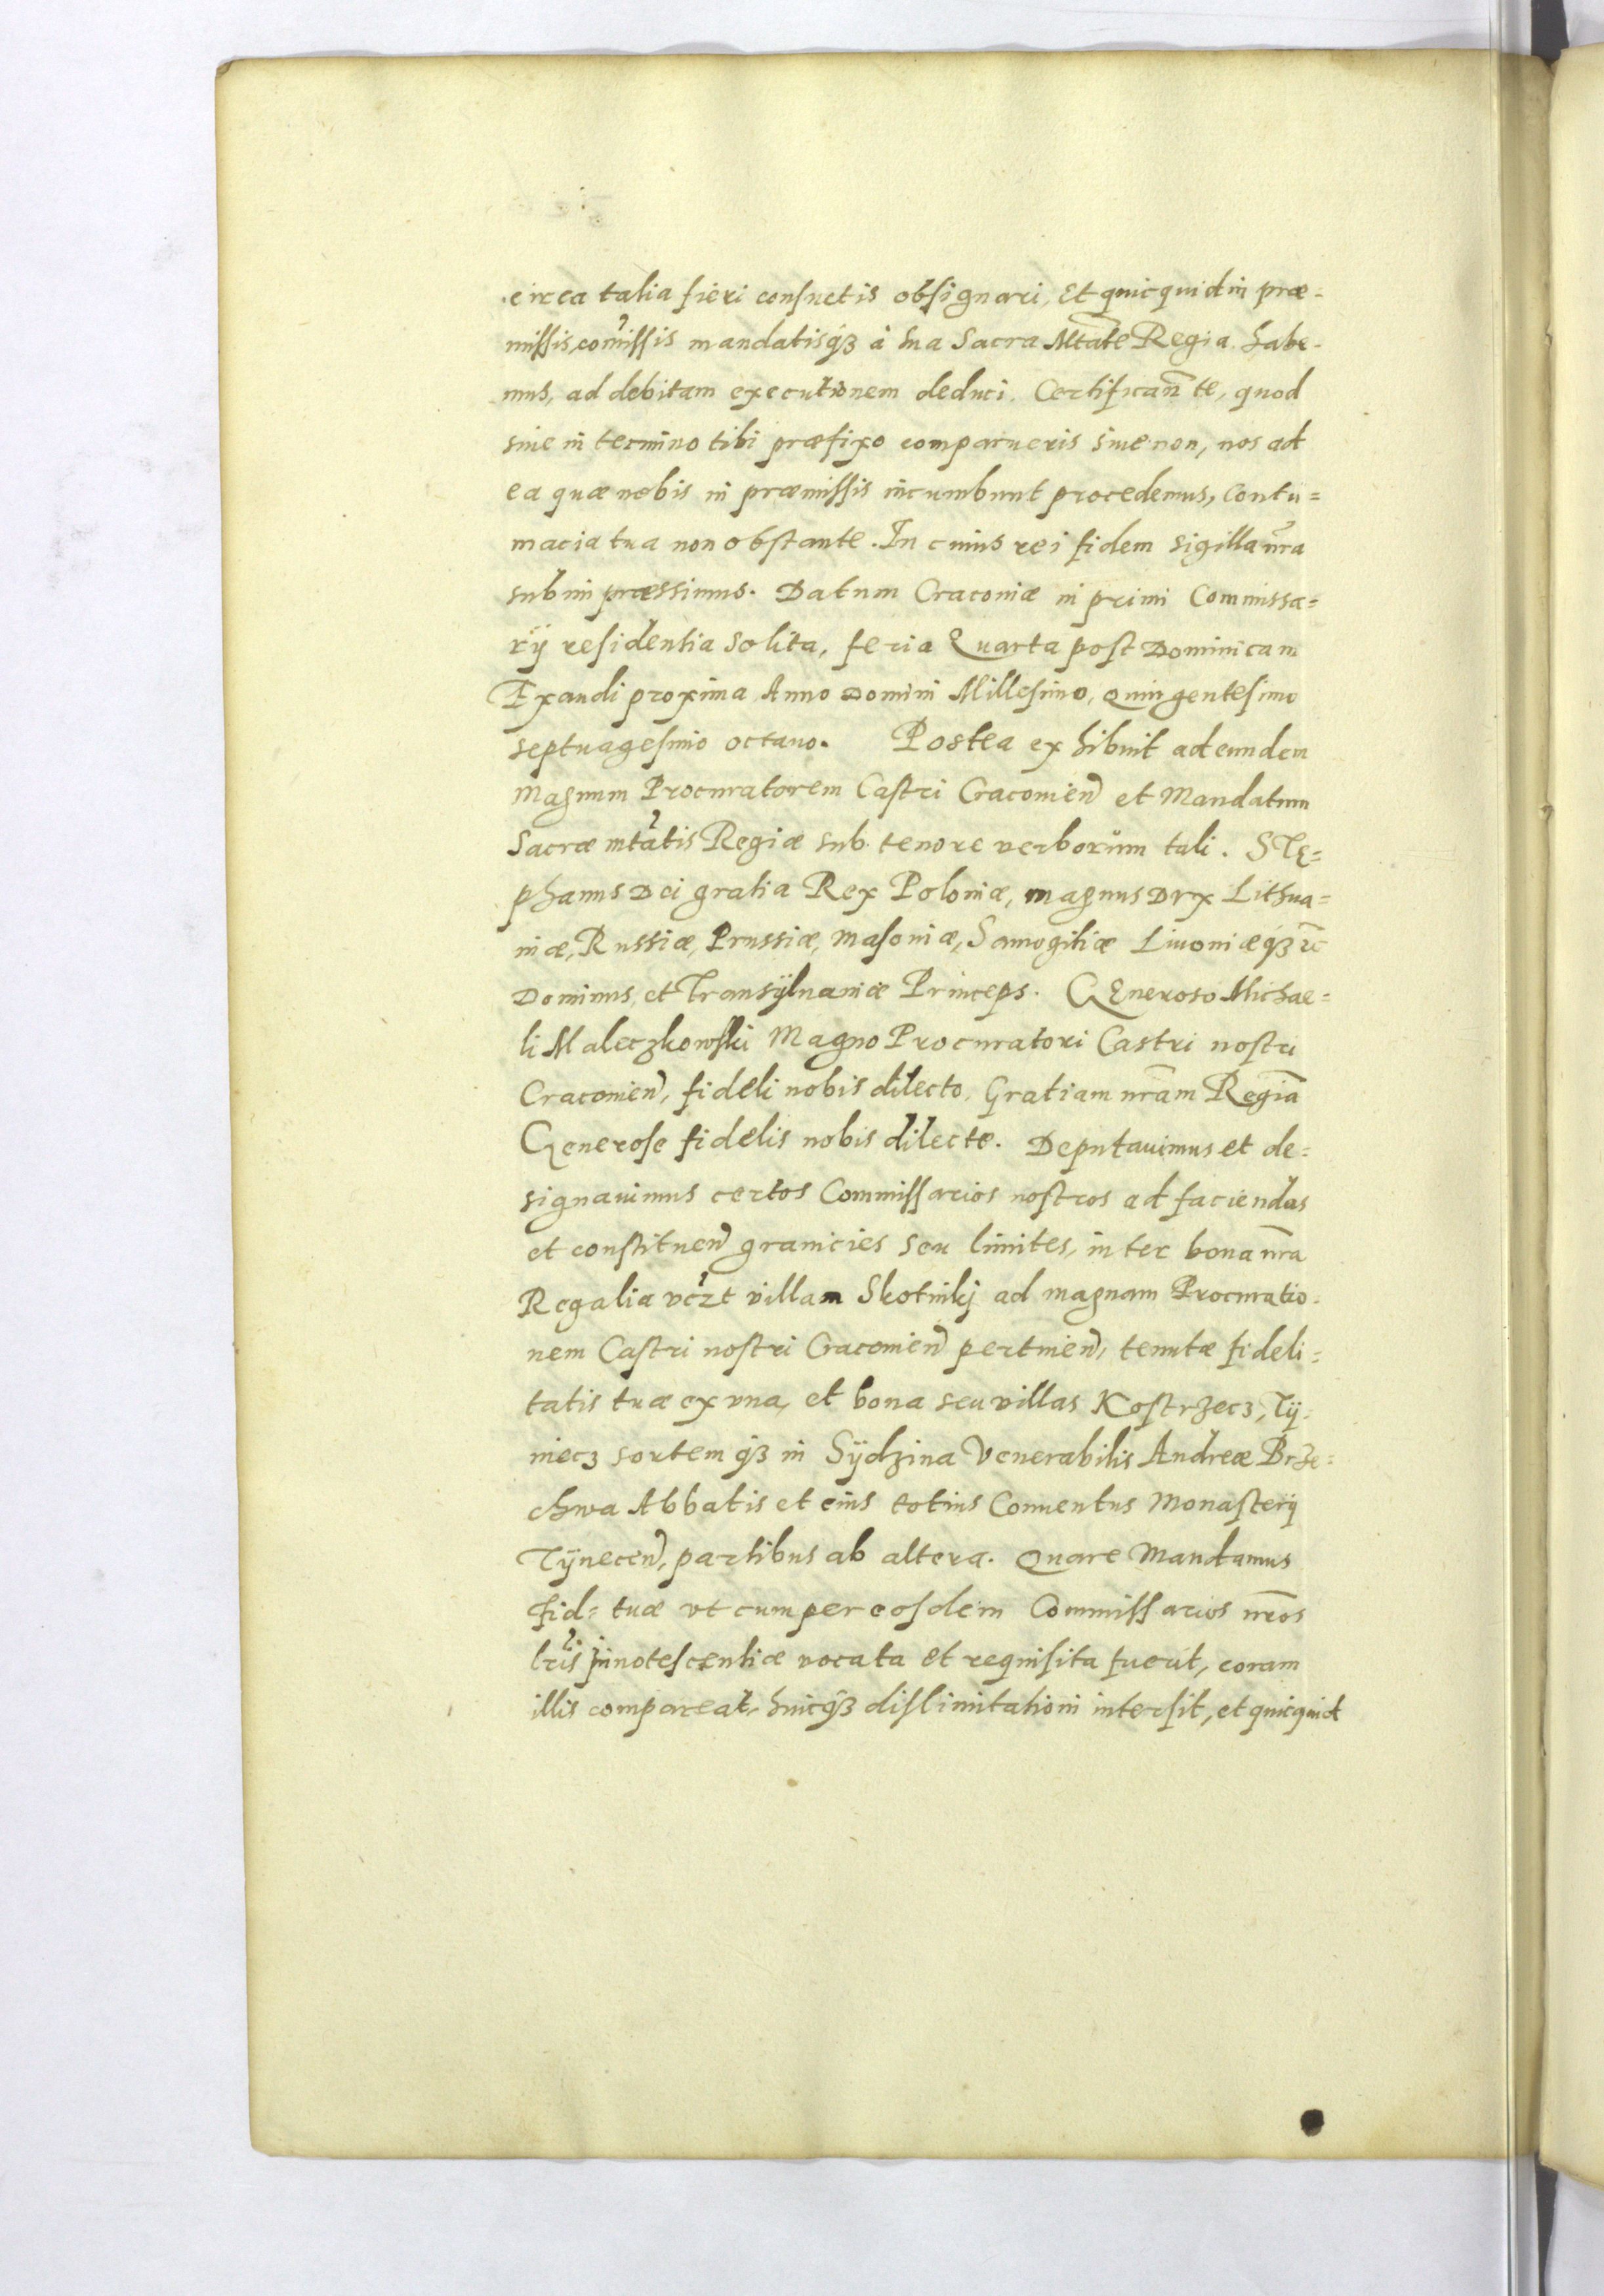 circa talia fieri consuetis obsignari, Et quicquid in præ=
missis, com̃issis mandatisq́ꝫ à sua Sacra Mt̃ate Regia habe-
mus, ad debitam executionem deduci. Certifican̄ te, quod
siue in termino tibi præfixo comparueris siue non, nos ad
ea quæ nobis in præmissis incumbunt procedemus, contu=
macia tua non obstante. In cuius rei fidem sigilla nr̃a
subimpræssimus. Datum Cracouiæ in primi Commissa=
rÿ residentia solita, feria Quarta post Dominicam
Exaudi proxima Anno Domini Millesimo, quingentesimo
septuagesimo octauo. Postea exhibuit ad eundem
Magnum Procuratorem Castri Cracouien̄ et Mandatum
Sacræ mt̃atis Regiæ sub tenore verborům tali. STE=
phanus Dei gratia Rex Poloniæ, magnus Dux Lithua=
niæ, Russiæ, Prussiæ, Masouiæ, Samogitiæ Liuoniæq́ꝫ ꝛc̃
Dominus, et Transÿluaniæ Princeps. GEneroso Michae=
li Maleczkowski Magno Procuratori Castri nostri
Cracouien̄, fideli nobis dilecto, Gratiam nr̃am Regiã
Generose fidelis nobis dilecte. Deputauimus et de=
signauimus certos Commissarios nostros ad faciendas
et constituen̄ granicies seu limites, inter bona nr̃a
Regalia vc̃zt villam Skotnikj ad magnam Procuratio-
nem Castri nostri Cracouien̄ pertinen̄, tenutæ fideli=
tatis tuæ ex vna, et bona seu villas Kostrzecz, Tÿ-
niecz sortemq́ꝫ in Sÿdzina Venerabilis Andreæ Brze=
chwa Abbatis et eius totius Conuentus Monasterÿ
Tÿnecen̄, partibus ab altera. Quare Mandamus
Fid= tuæ vt cum per eosdem Commissarios nr̃os
lr̃is innotescentiæ vocata et requisita fuerit, coram
illis compareat, huicq́ꝫ dislimitationi intersit, et quicquid